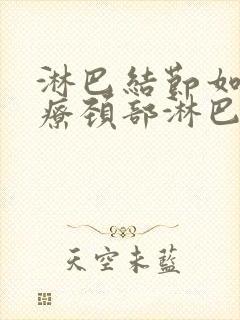 淋巴結節如
療頚部淋巴
天空未藍